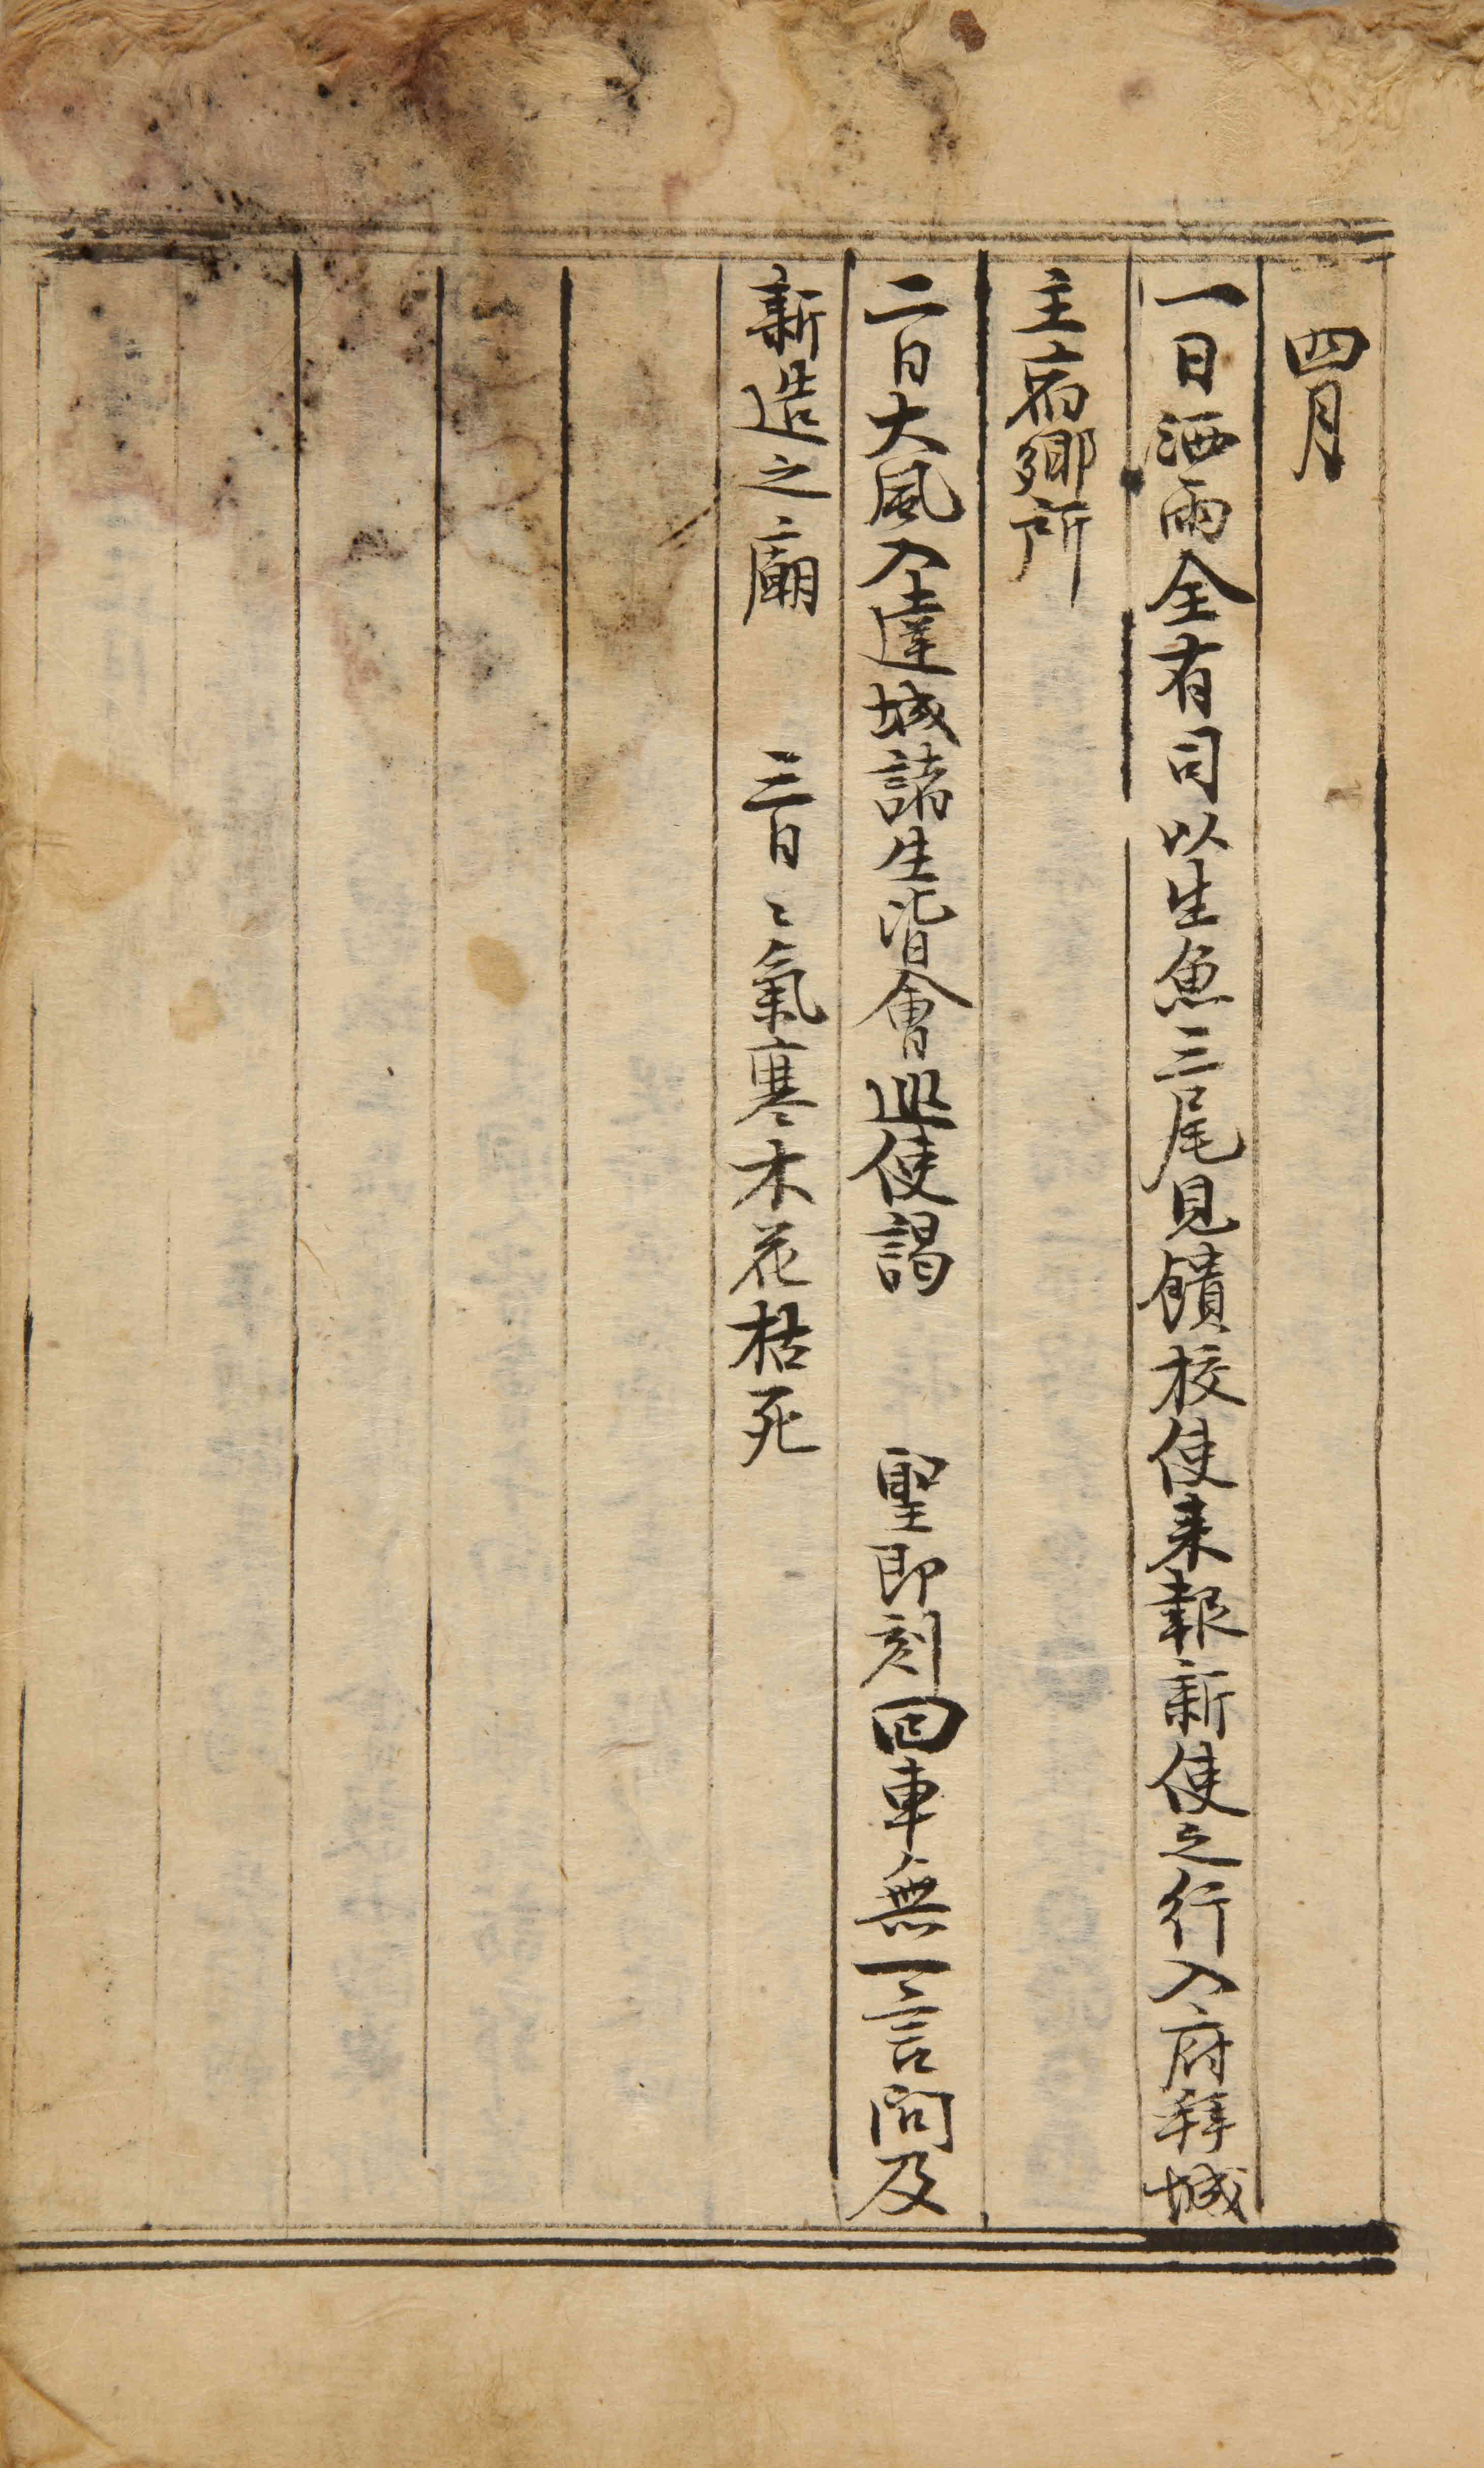 四月
一日洒雨全有司以生魚三尾見饋校使来報新使之行入府拜城
主宿鄉所
二日大風入達城諸生皆會巡使謁 聖即刻回車無一言問及
新造之廟 三日〻氣寒木花枯死